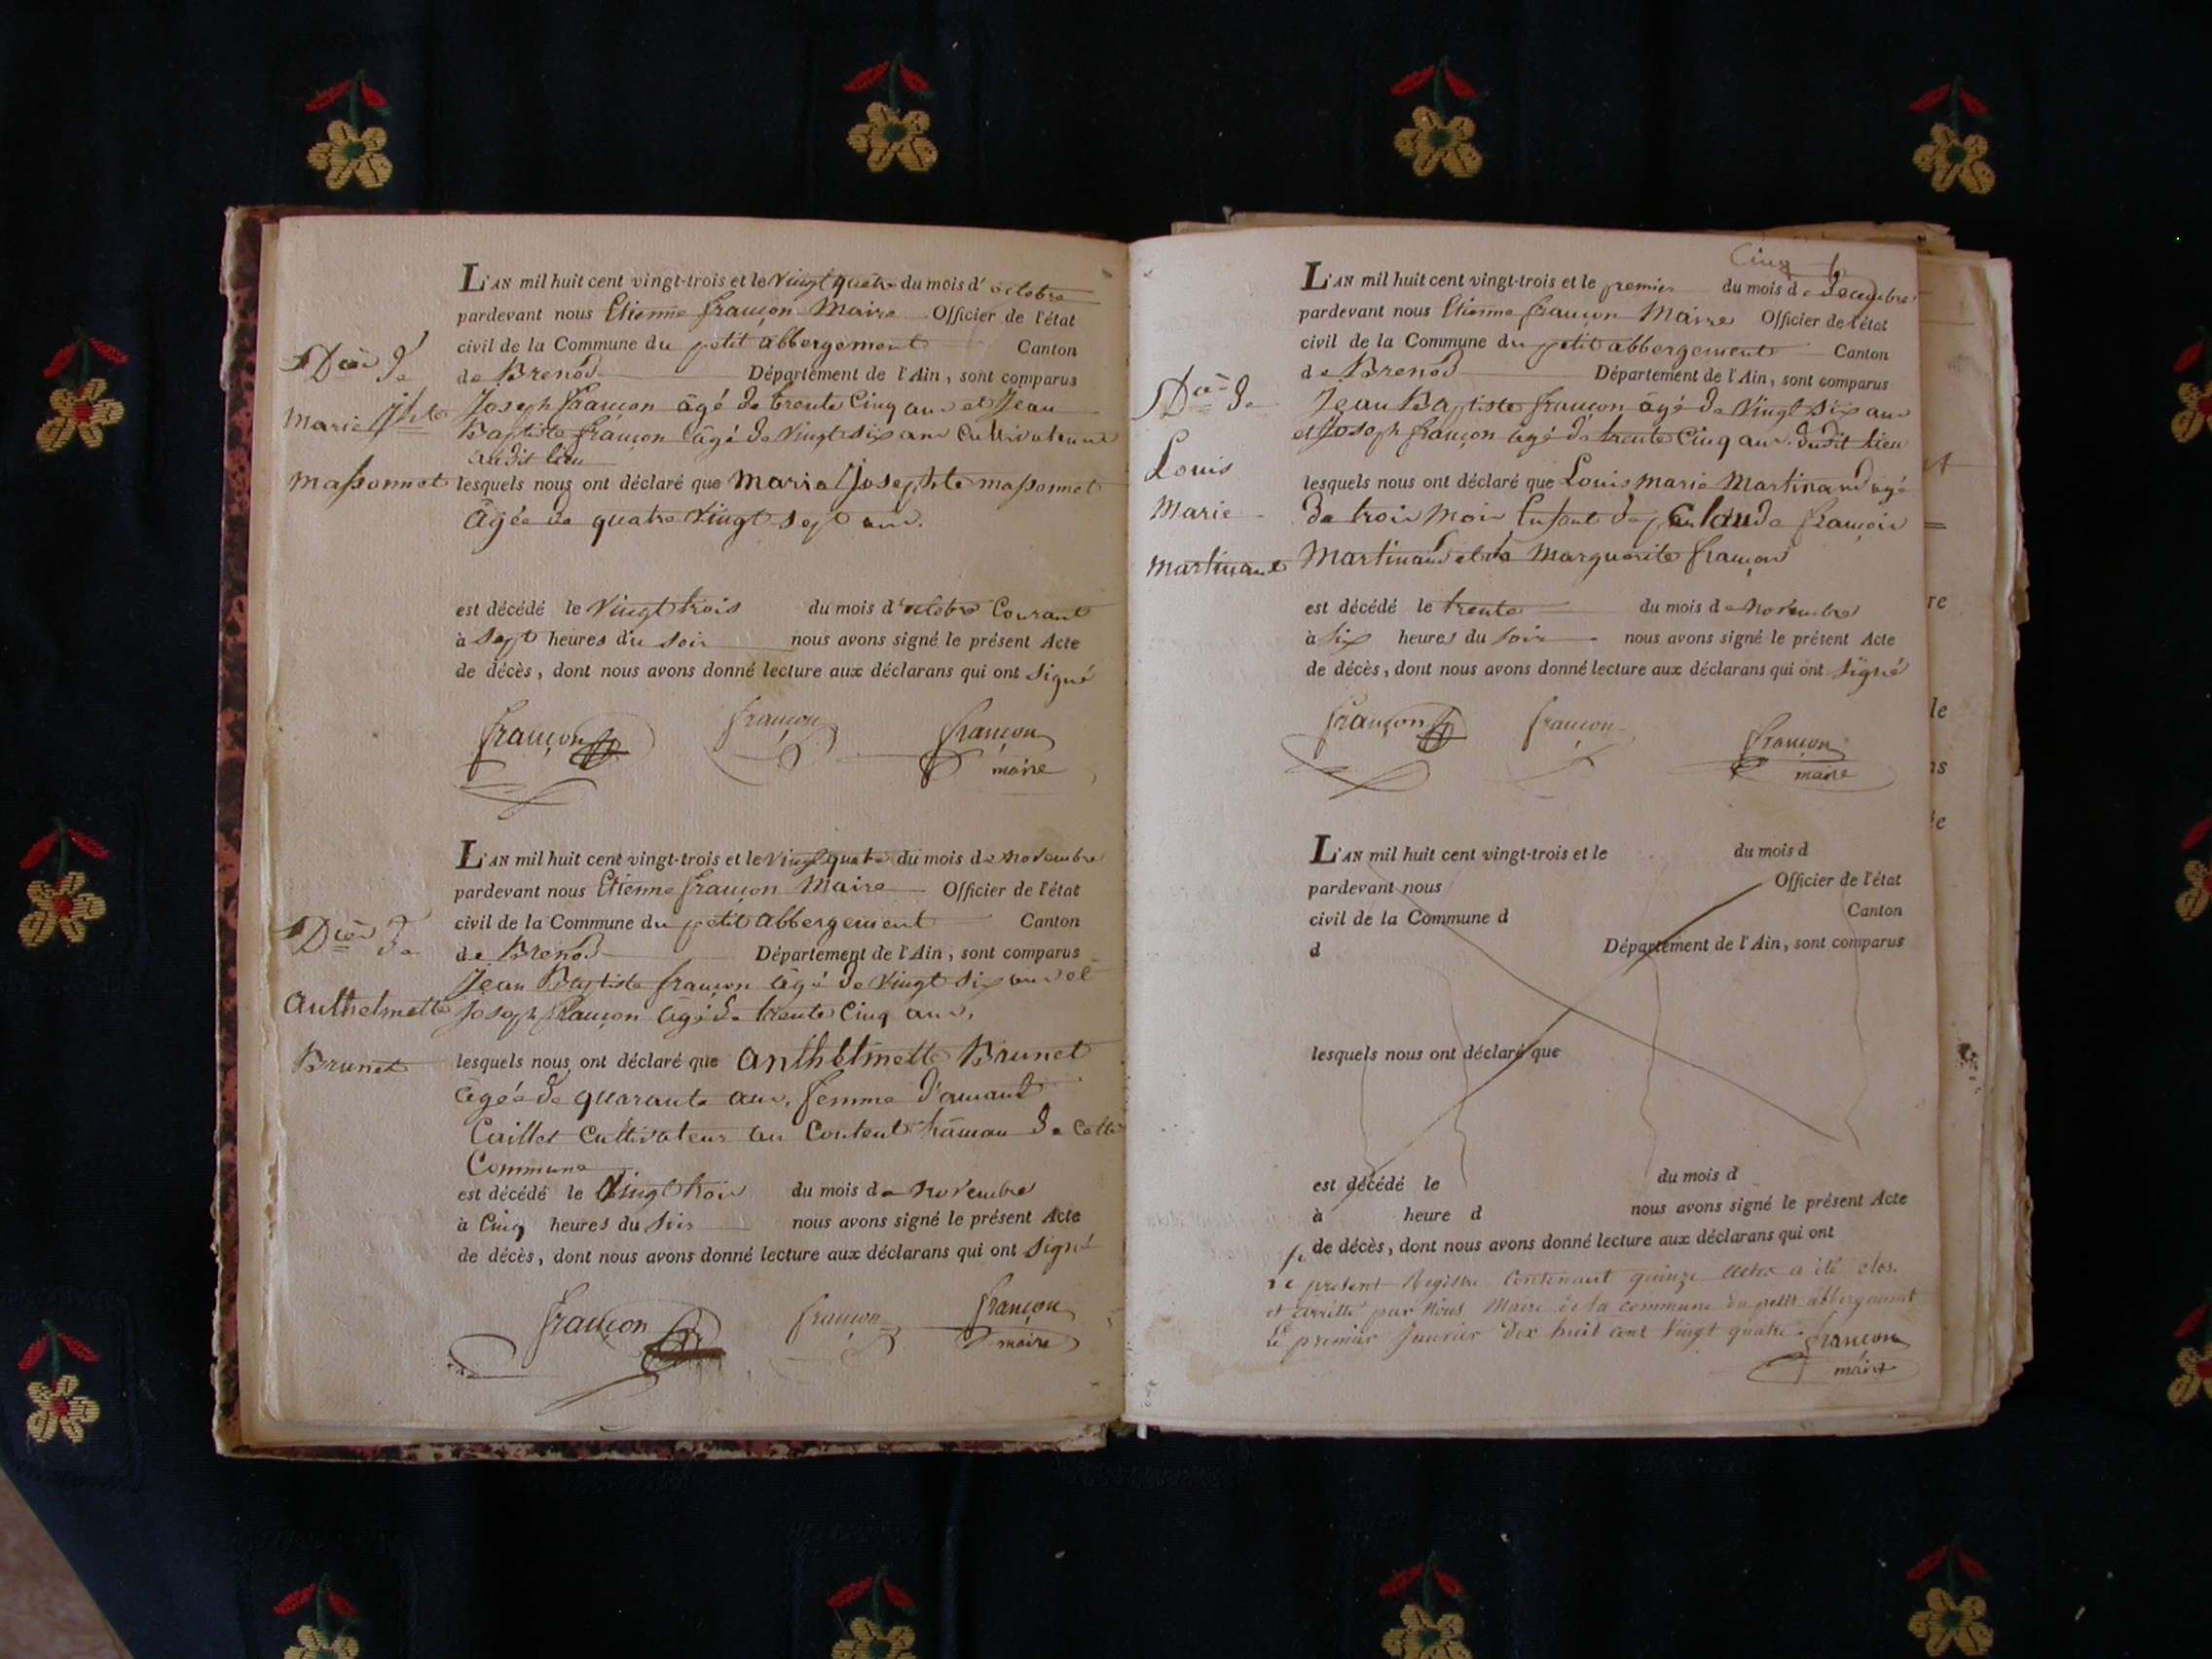 L'AN mil huit cent vingt-trois et le vingt quatre du mois d'octobre
pardevant nous Etienne françon Maire Officier de l'état
civil de la Commune du petit abbergement Canton
de Brenod Département de l'Ain, sont comparus
Joseph françon âgé de trente Cinq ans et Jean
Baptiste françon âgé de vingt six ans Cultivateurs
audit lieu
lesquels nous ont déclaré que Marie Josephte massonnet
âgée de quatre vingt sept ans.
est décédé le vingt trois du mois d'octobre Courant
à sept heures du soir nous avons signé le présent Acte
de décès, dont nous avons donné lecture aux déclarans qui ont signé
Dcès de
Marie Jhte
massonnet
françon françon françon
maire
L'AN mil huit cent vingt-trois et le vingt quatre du mois de novembre
pardevant nous Etienne françon Maire Officier de l'état
civil de la Commune du petit abbergement Canton
de Brenod Département de l'Ain, sont comparus
Jean Baptiste françon âgé de vingt six ans et
Joseph françon âgé de trente Cinq ans.
lesquels nous ont déclaré que anthelmette Brunet
âgée de quarante ans, femme d'amand
Caillet Cultivateur au Content hâmau de cette
Commune
est décédé le vingt trois du mois de novembre
à Cinq heures du soir nous avons signé le présent Acte
de décès, dont nous avons donné lecture aux déclarans qui ont signé
Dcès de
anthelmette
Brunet
françon françon françon
maire
Cinq
L'AN mil huit cent vingt-trois et le premier du mois de decembre
pardevant nous Etienne françon Maire Officier de l'état
civil de la Commune du petit abbergement Canton
de Brenod Département de l'Ain, sont comparus
Jean Baptiste françon âgé de vingt six ans
et Joseph françon âgé de trente Cinq ans. dudit lieu
lesquels nous ont déclaré que Louis marie Martinand agé
de trois mois Enfant de Claude françois
Martinand et de Marguerite françon
est décédé le trente du mois de novembre
à six heures du soir nous avons signé le présent Acte
de décès, dont nous avons donné lecture aux déclarans qui ont signé
Dcès de
Louis
Marie
Martinand
françon françon françon
maire
L'AN mil huit cent vingt-trois et le du mois d
pardevant nous Officier de l'état
civil de la Commune d Canton
d Département de l'Ain, sont comparus
lesquels nous ont déclaré que
est décédé le du mois d
à heure d nous avons signé le présent Acte
de décès, dont nous avons donné lecture aux déclarans qui ont
le present Registre Contenant quinze actes a été clos.
et arretté par Nous Maire de la commune du petit abbergement
le premier Janvier dix huit cent vingt quatre. françon
maire